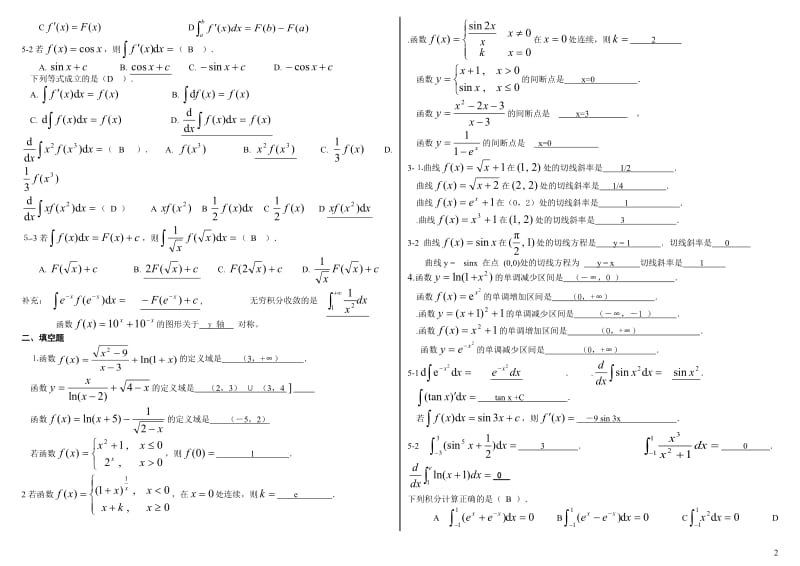 C f′(x) = F(x)  D ∫_a^b f′(x)dx = F(b) − F(a)
5-2 若 f(x) = cos x，则 ∫ f′(x)dx =（ B ）．
A. sin x + c  B. cos x + c  C. − sin x + c  D. − cos x + c
下列等式成立的是（D ）．
A. ∫ f′(x)dx = f(x)  B. ∫ df(x) = f(x)
C. d∫ f(x)dx = f(x)  D. d/dx ∫ f(x)dx = f(x)
d/dx ∫ x² f(x³)dx =（ B ）． A. f(x³)  B. x² f(x³)  C. 1/3 f(x)  D.
1/3 f(x³)
d/dx ∫ xf(x²)dx =（ D ）  A xf(x²)  B 1/2 f(x)dx  C 1/2 f(x)  D xf(x²)dx
5-3 若 ∫ f(x)dx = F(x) + c，则 ∫ 1/√x f(√x)dx =（ B ）．
A. F(√x) + c  B. 2F(√x) + c  C. F(2√x) + c  D. 1/√x F(√x)
补充： ∫ e^{−x} f(e^{−x})dx = − F(e^{−x}) + c， 无穷积分收敛的是 ∫_1^{+∞} 1/x² dx
函数 f(x) = 10^x + 10^{−x} 的图形关于 y 轴 对称．
二、填空题
1.函数 f(x) = √(x² − 9)/(x − 3) + ln(1 − x) 的定义域是 （3，+∞） ．
函数 y = x/ln(x − 2) + √(4 − x) 的定义域是 （2，3）∪（3，4 ]
函数 f(x) = ln(x + 5) − 1/√(2 − x) 的定义域是 （－5，2）
若函数 f(x) = { x² + 1, x ≤ 0; 2^x, x > 0 ，则 f(0) = 1 ．
2 若函数 f(x) = { (1 + x)^{1/x}, x < 0; x + k, x ≥ 0 ，在 x = 0 处连续，则 k = e ．
.函数 f(x) = { sin 2x/x  x ≠ 0; k  x = 0 在 x = 0 处连续，则 k = 2
函数 y = { x + 1, x > 0; sin x, x ≤ 0 的间断点是 x=0 ．
函数 y = (x² − 2x − 3)/(x − 3) 的间断点是 x=3 ．
函数 y = 1/(1 − e^x) 的间断点是 x=0
3- 1.曲线 f(x) = √x + 1 在 (1, 2) 处的切线斜率是 1/2 ．
曲线 f(x) = √(x + 2) 在 (2, 2) 处的切线斜率是 1/4 ．
曲线 f(x) = e^x + 1 在（0，2）处的切线斜率是 1 ．
.曲线 f(x) = x³ + 1 在 (1, 2) 处的切线斜率是 3 ．
3-2 曲线 f(x) = sin x 在 (π/2, 1) 处的切线方程是 y＝1 ．切线斜率是 0
曲线 y＝ sinx 在点 (0,0)处的切线方程为 y＝x 切线斜率是 1
4.函数 y = ln(1 + x²) 的单调减少区间是 （－∞，0 ） ．
函数 f(x) = e^{x²} 的单调增加区间是 （0，+∞） ．
函数 y = (x + 1)² + 1 的单调减少区间是 （－∞，－1 ） ．
.函数 f(x) = x² + 1 的单调增加区间是 （0，+∞） ．
函数 y = e^{−x²} 的单调减少区间是 （0，+∞） ．
5-1 d∫ e^{−x²} dx = e^{−x²} dx ． ．d/dx ∫ sin x² dx = sin x² ．
∫ (tan x)′dx = tan x +C ．
若 ∫ f(x)dx = sin 3x + c，则 f′(x) = －9 sin 3x ．
5-2 ∫_{−3}^{3} (sin⁵ x + 1/2)dx = 3 ． ∫_{−1}^{1} x³/(x² + 1) dx = 0 ．
d/dx ∫_1^e ln(x + 1)dx = 0
下列积分计算正确的是（ B ）．
A ∫_{−1}^{1} (e^x + e^{−x})dx = 0  B ∫_{−1}^{1} (e^x − e^{−x})dx = 0  C ∫_{−1}^{1} x² dx = 0  D
2